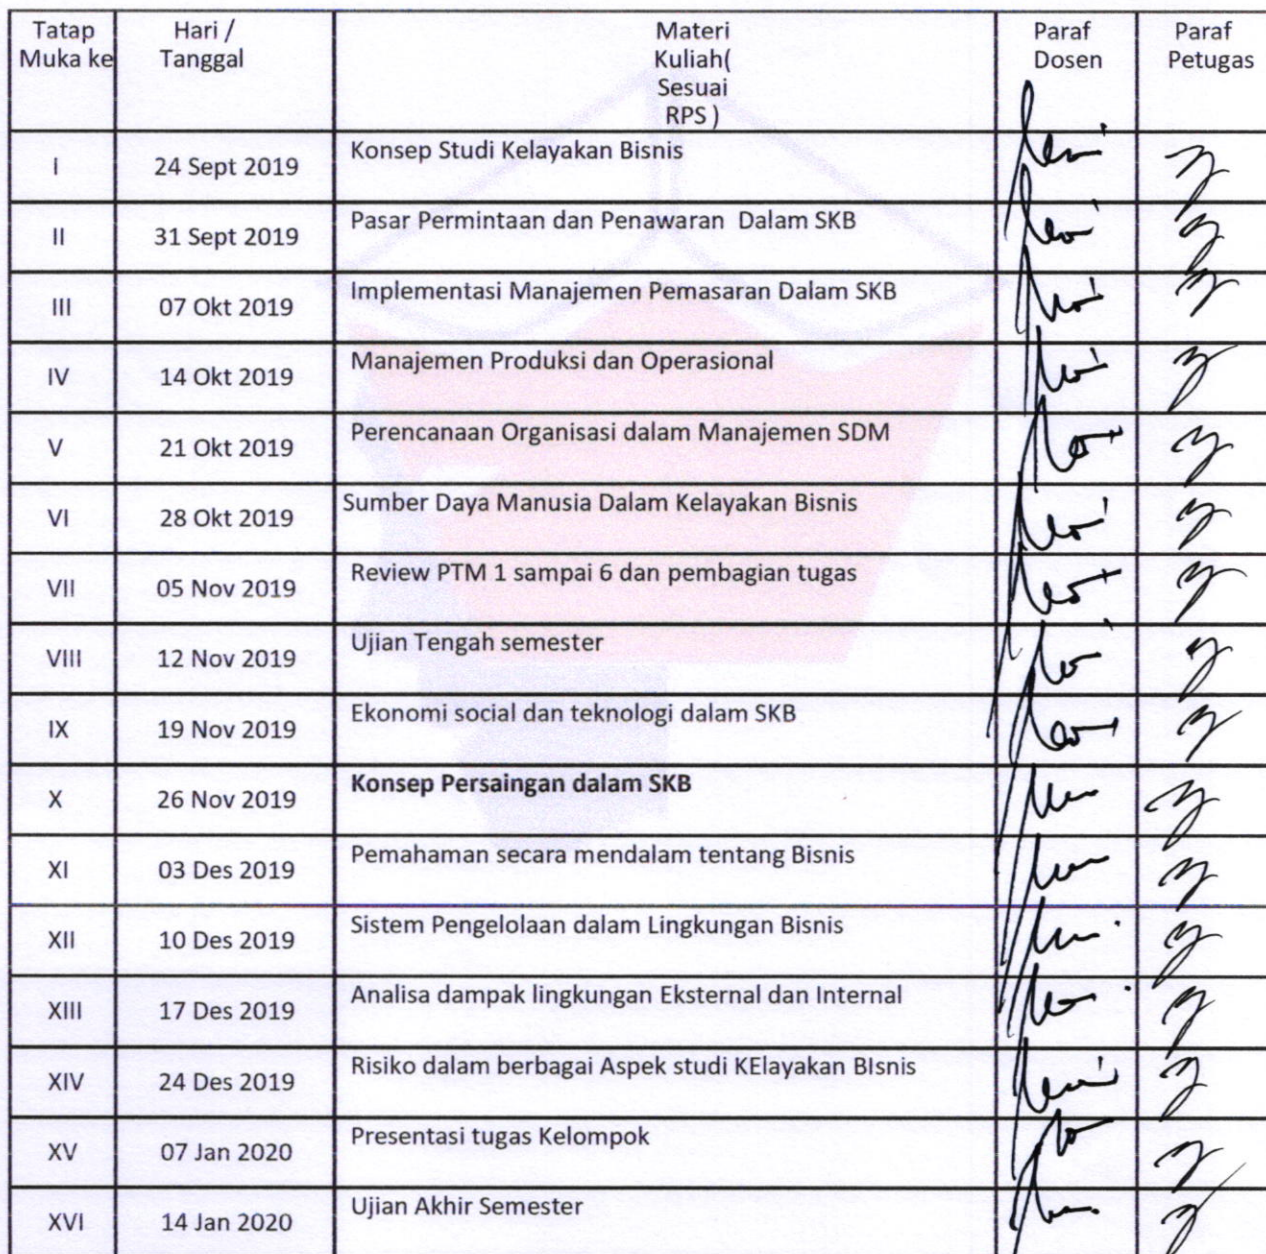 Tatap Muka ke Hari / Tanggal Materi Kuliah( Sesuai RPS ) Paraf Dosen Paraf Petugas
I 24 Sept 2019 Konsep Studi Kelayakan Bisnis
II 31 Sept 2019 Pasar Permintaan dan Penawaran Dalam SKB
III 07 Okt 2019 Implementasi Manajemen Pemasaran Dalam SKB
IV 14 Okt 2019 Manajemen Produksi dan Operasional
V 21 Okt 2019 Perencanaan Organisasi dalam Manajemen SDM
VI 28 Okt 2019 Sumber Daya Manusia Dalam Kelayakan Bisnis
VII 05 Nov 2019 Review PTM 1 sampai 6 dan pembagian tugas
VIII 12 Nov 2019 Ujian Tengah semester
IX 19 Nov 2019 Ekonomi social dan teknologi dalam SKB
X 26 Nov 2019 Konsep Persaingan dalam SKB
XI 03 Des 2019 Pemahaman secara mendalam tentang Bisnis
XII 10 Des 2019 Sistem Pengelolaan dalam Lingkungan Bisnis
XIII 17 Des 2019 Analisa dampak lingkungan Eksternal dan Internal
XIV 24 Des 2019 Risiko dalam berbagai Aspek studi KElayakan BIsnis
XV 07 Jan 2020 Presentasi tugas Kelompok
XVI 14 Jan 2020 Ujian Akhir Semester